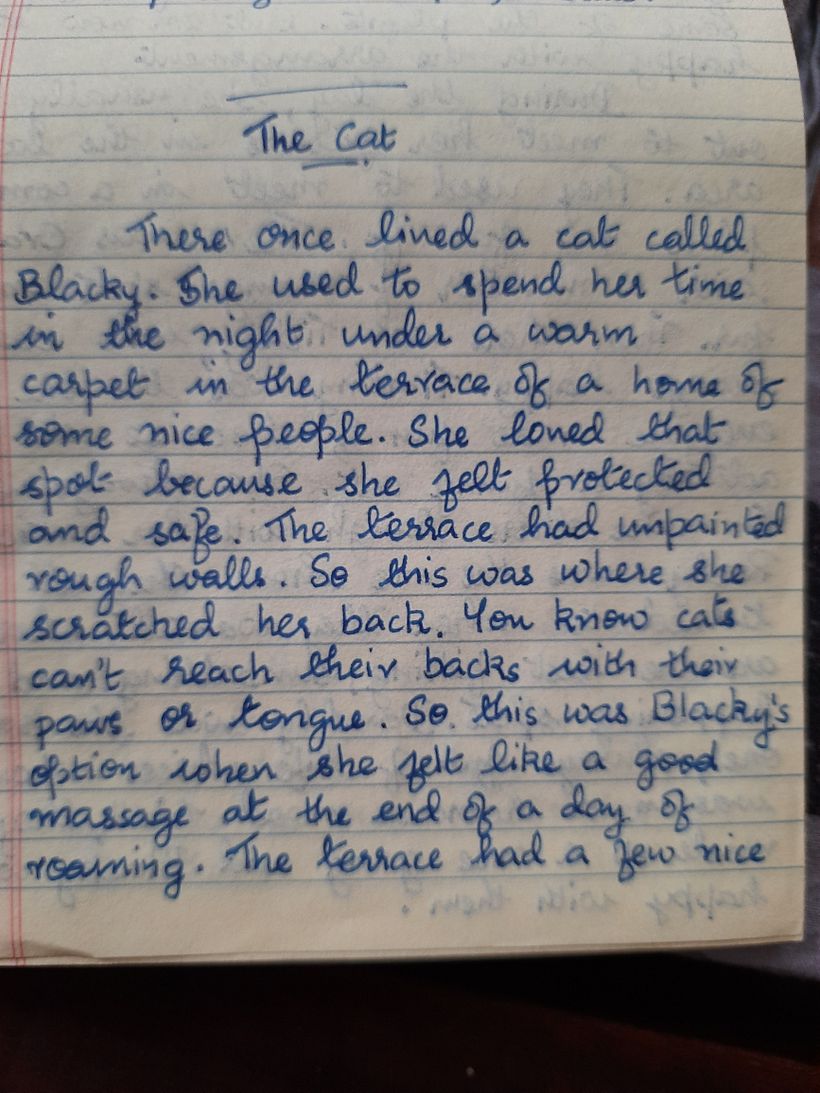 The Cat
There once lived a cat called
Blacky. She used to spend her time
in the night under a warm
carpet in the terrace of a home of
some nice people. She loved that
spot because she felt protected
and safe. The terrace had unpainted
rough walls. So this was where she
scratched her back. You know cats
can't reach their backs with their
paws or tongue. So this was Blacky's
option when she felt like a good
massage at the end of a day of
roaming. The terrace had a few nice